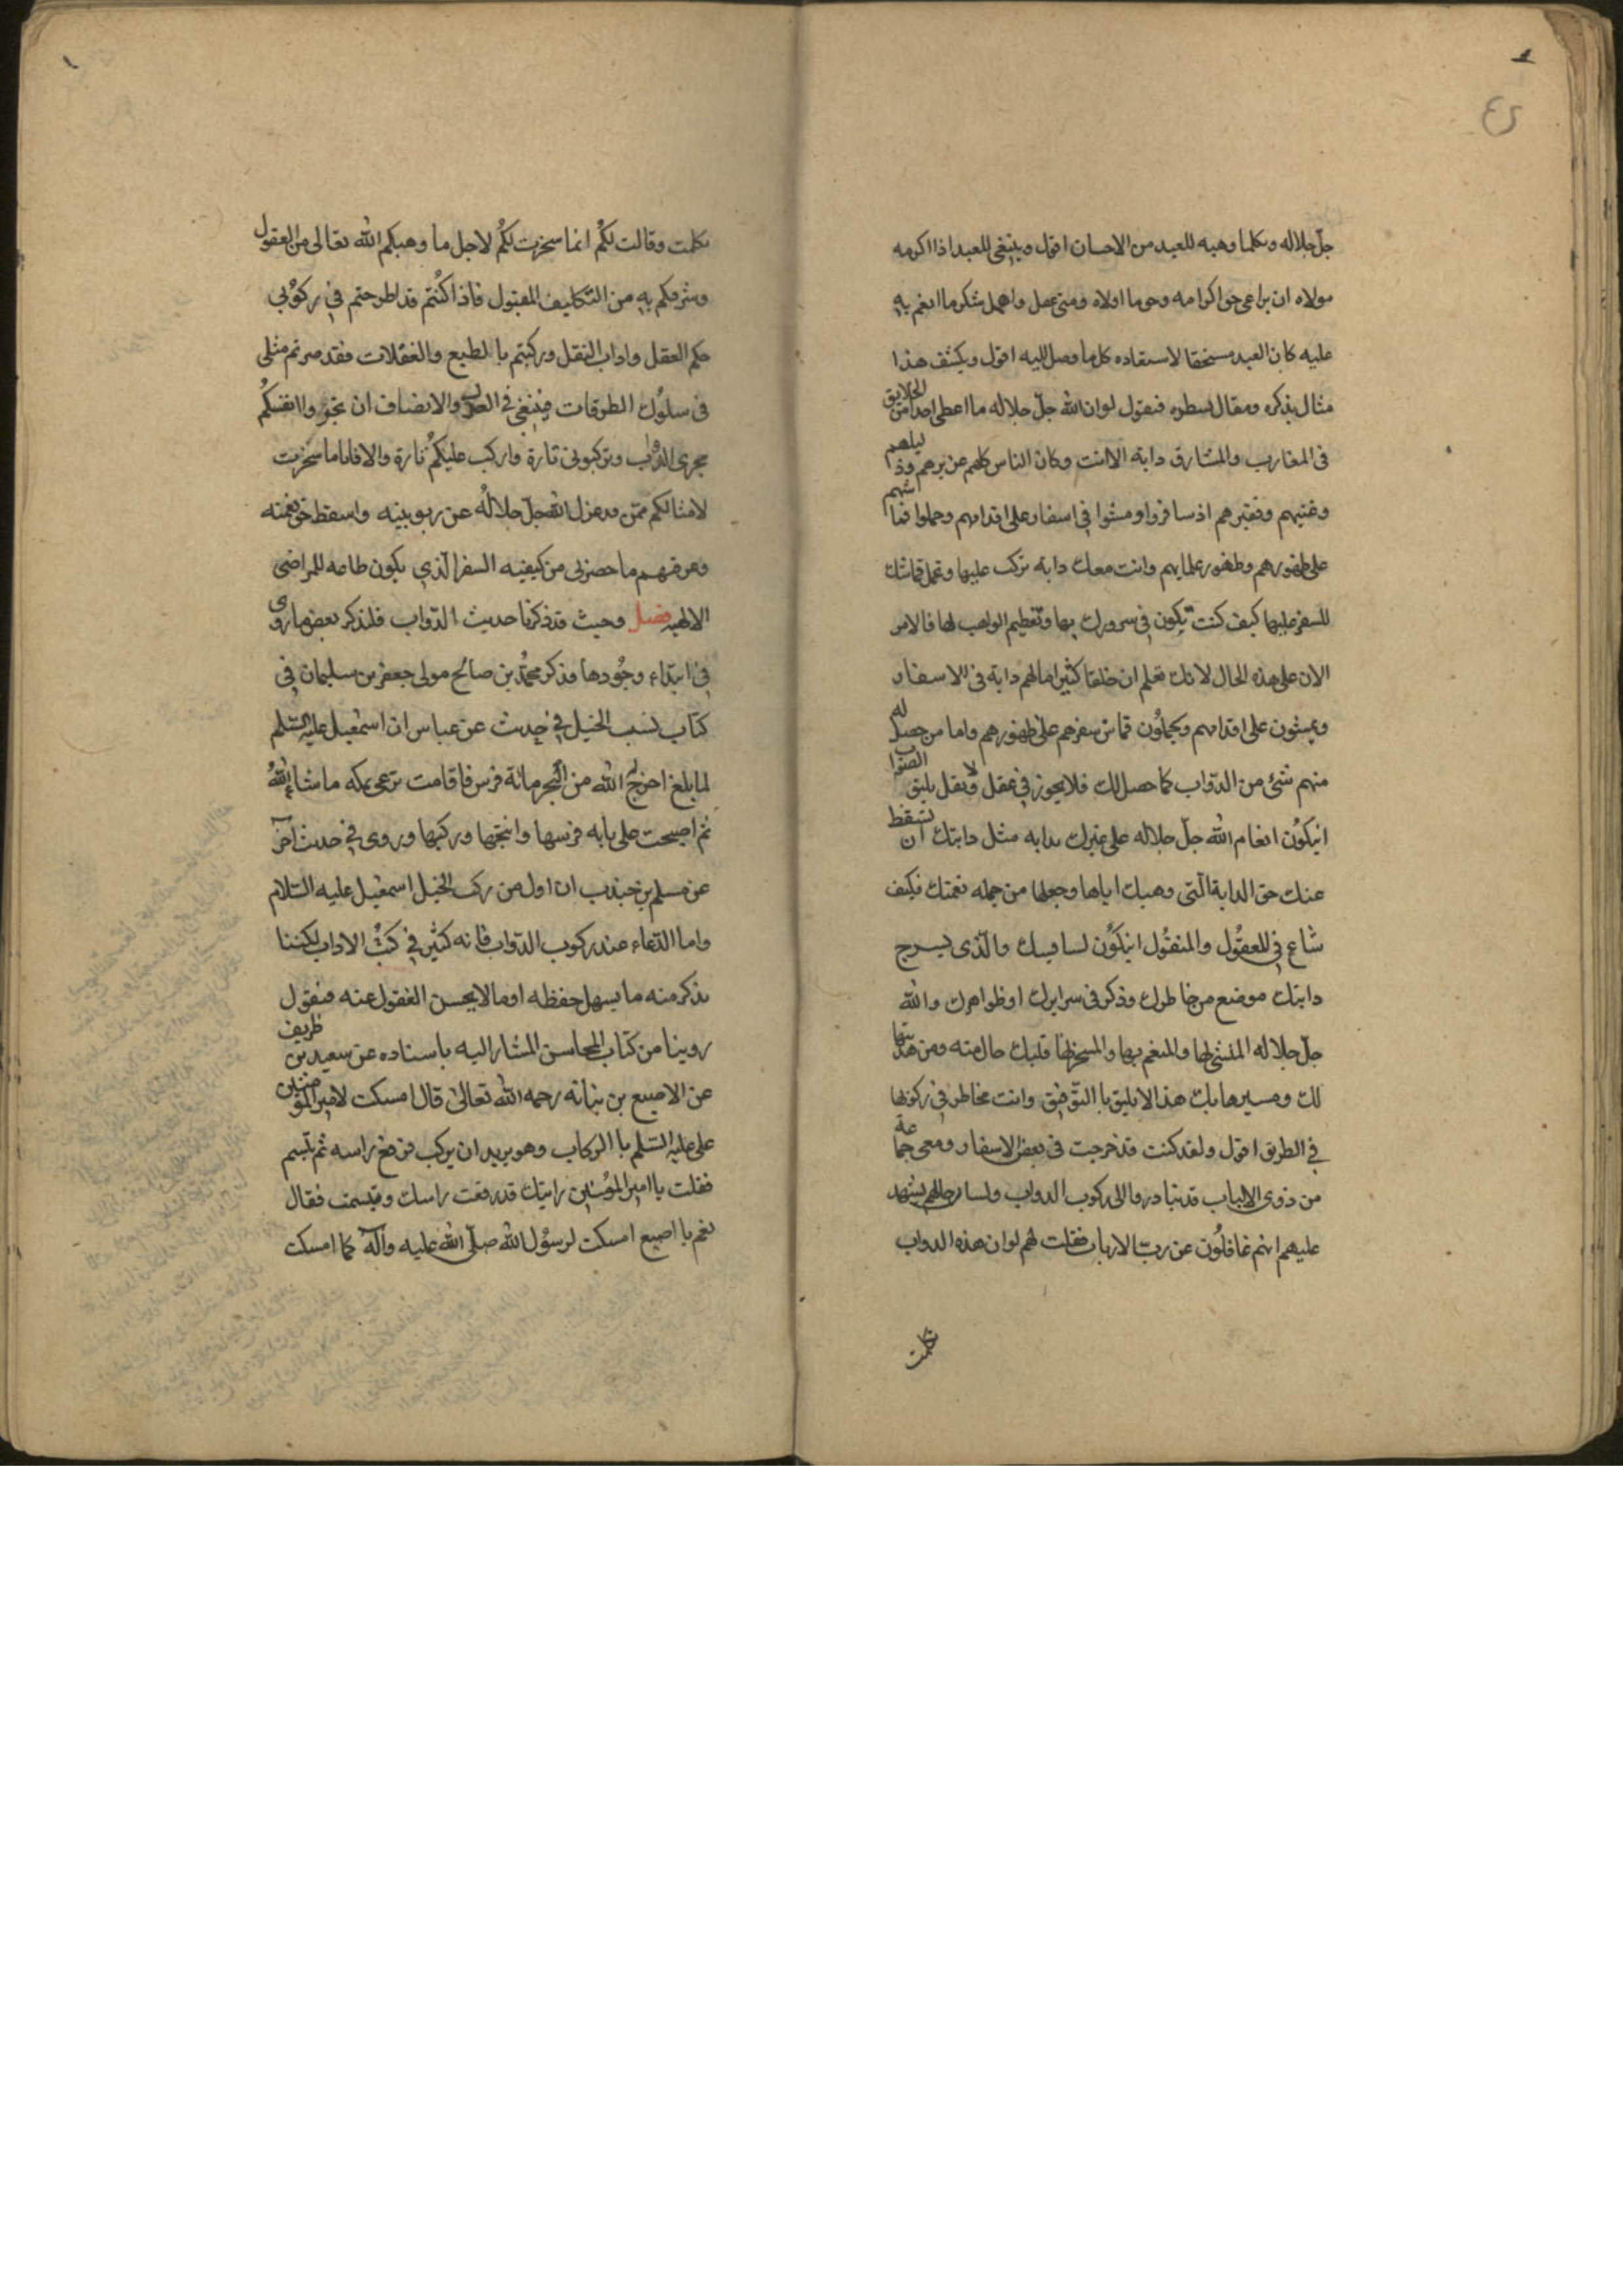 جل جلاله وبكلما وهبه للعبد من الاحسان اقول وينبغى للعبد اذا اكرمه
مولاه ان يراعى حق اكرامه وحق ما اولاه ومتى غفل واهمل شكر ما انعم به
عليه كان العبد مستحقا لاستعاده كل ما وصل اليه اقول ويكشف هذا
مثال نذكره ومقال نسطره فنقول لو ان الله جل جلاله ما اعطى احدا من الخلايق
فى المغارب والمشارق دابة الا انت وكان الناس كلهم عن برهم وذليلهم
وغنيهم وفقيرهم اذ سافروا ومشوا فى اسفار على اقدامهم وحملوا قماشهم
على ظهورهم وظهور غلمانهم وانت معك دابة تركب عليها وتحمل قماشك
للسفر عليها كيف كنت تكون فى سرورك بها وتعظيم الواهب لها فالامر
الان على هذه الحال لانك تعلم ان خلقا كثيرا ما لهم دابة فى الاسفار
ويمشون على اقدامهم ويحملون قماش سفرهم على ظهورهم واما من حصل له
منهم شئ من الدواب كما حصل لك فلا يجوز فى عقل ولا نقل يليق الصواب
ان يكون انعام الله جل جلاله على غيرك بدابه مثل دابتك ان تسقط
عنك حق الدابة التى وهبك اياها وجعلها من جمله نعمتك فكيف
شاع فى المعقول والمنقول ان يكون لسايسك والذى يسرج
دابتك موضع من خاطرك وذكر فى سرايرك او ظواهرك والله
جل جلاله المنشئ لها والمنعم بها والمسخر لها قلبك خال منه ومن هدايتها
لك ومسيرها بك هذا لا يليق با التوفيق وانت مخاطر فى ركوبها
فى الطريق اقول ولقد كنت قد خرجت فى بعض الاسفار ومعى جماعة
من ذوى الالباب قد تبادروا الى ركوب الدواب ولسان حالهم يشهد
عليهم انهم غافلون عن رب الارباب فقلت لهم لو ان هذه الدواب
تكلمت
تكلمت وقالت لكم انما سخرت لكم لاجل ما وهبكم الله تعالى من العقول
وشرفكم به من التكاليف المقبول فاذا كنتم قد اطرحتم فى ركوبى
حكم العقل واداب النقل وركبتم با الطبع والغفلات فقد صرتم مثلى
فى سلوك الطرقات فينبغى فى العدل والانصاف ان تجروا انفسكم
مجرى الدواب وتركبونى تارة واركب عليكم تارة والا فانا ما سخرت
لامثالكم ممن قد عزل الله جل جلاله عن ربوبيته واسقط حق نعمته
وعرفتهم ما حضرنى من كيفيه السفر الذى يكون طاعه للمراضى
الالهيه فصل وحيث قد ذكرنا حديث الدواب فلنذكر بعض ما روى
فى ابتداء وجودها فذكر محمد بن صالح مولى جعفر بن سليمان فى
كتاب نسب الخيل فى حديث عن عباس ان اسمعيل عليه السلم
لما بلغ اخرج الله من البحر مائة فرس فاقامت ترعى بمكه ما شاء الله
ثم اصبحت على بابه فرسها وانتجها وركبها وروى فى حديث آخر
عن مسلم بن جندب ان اول من ركب الخيل اسمعيل عليه السلام
واما الدعاء عند ركوب الدواب فانه كثير فى كتب الاداب لكننا
نذكر منه ما يسهل حفظه او ما لا يحسن الغفول عنه فنقول
روينا من كتاب المحاسن المشار اليه باسناده عن سعيد بن ظريف
عن الاصبع بن نباته رحمه الله تعالى قال امسكت لامير المؤمنين
على عليه السلم با الركاب وهو يريد ان يركب فرفع راسه ثم تبسم
فقلت يا امير المؤمنين رايتك قد رفعت راسك وتبسمت فقال
نعم يا اصبع امسكت لرسول الله صلى الله عليه وآله كما امسكت